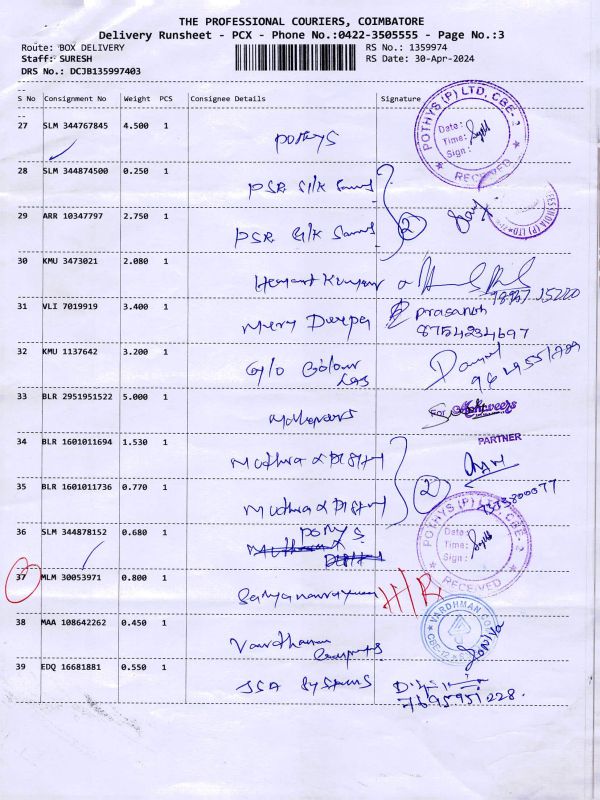 THE PROFESSIONAL COURIERS, COIMBATORE
Delivery Runsheet - PCX - Phone No.:0422-3505555 - Page No.:3
Route: BOX DELIVERY RS No.: 1359974
Staff: SURESH RS Date: 30-Apr-2024
DRS No.: DCJB135997403
S No Consignment No Weight PCS Consignee Details Signature
27 SLM 344767845 4.500 1 Pothys
POTHYS (P) LTD, CBE-2
Date:
Time:
Sign:
RECEIVED
28 SLM 344874500 0.250 1 PSR Silk Sarees
29 ARR 10347797 2.750 1 PSR Silk Sarees 2
30 KMU 3473021 2.080 1 Hemant Kumar
31 VLI 7019919 3.400 1 Mery Deepa Prasanth
8754234697
32 KMU 1137642 3.200 1 G/o Colour Lab
33 BLR 2951951522 5.000 1 For
PARTNER
34 BLR 1601011694 1.530 1 Muthra
35 BLR 1601011736 0.770 1 Muthra 2
36 SLM 344878152 0.680 1 Pothys
POTHYS (P) LTD, CBE-2
Date:
Time:
Sign:
RECEIVED
37 MLM 30053971 0.800 1 Satyanarayanan H/R
38 MAA 108642262 0.450 1 Vardhaman
VARDHMAN
39 EDQ 16681881 0.550 1 JSA Systems
7695951228.